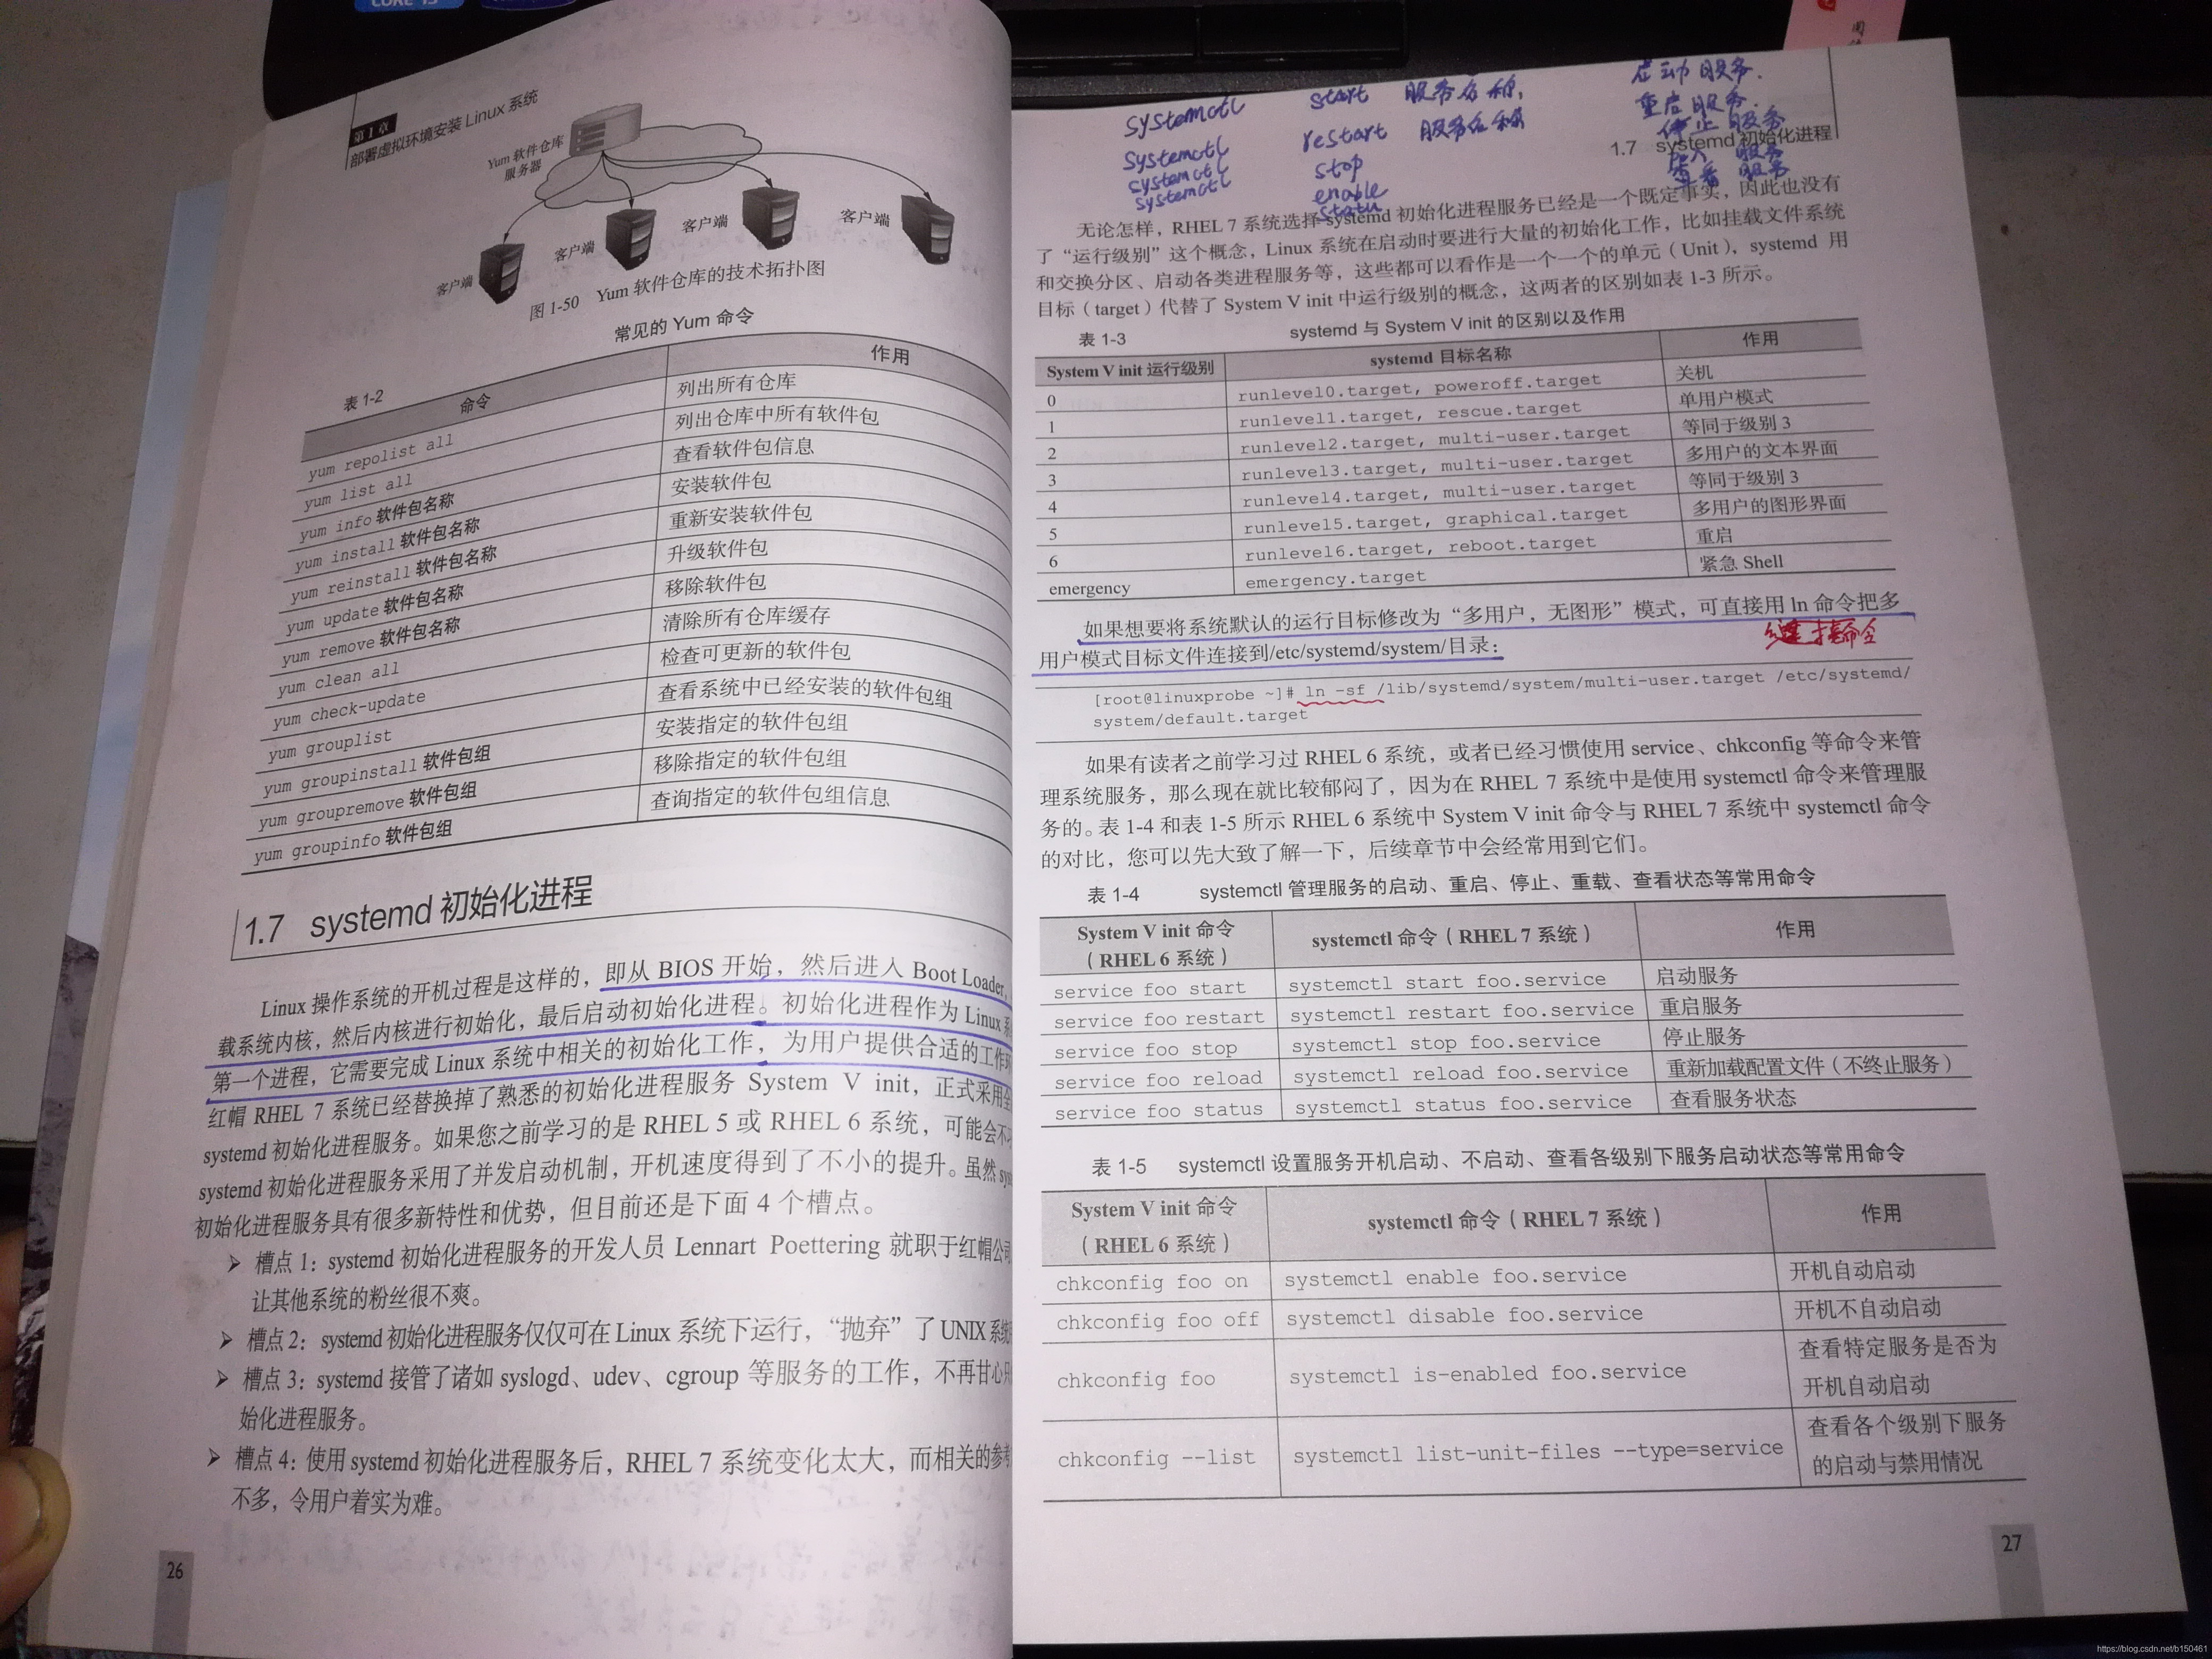 第1章
部署虚拟环境安装 Linux 系统
Yum 软件仓库
服务器
客户端
客户端
客户端
客户端
图 1-50 Yum 软件仓库的技术拓扑图
表 1-2 常见的 Yum 命令
命令 作用
yum repolist all 列出所有仓库
yum list all 列出仓库中所有软件包
yum info 软件包名称 查看软件包信息
yum install 软件包名称 安装软件包
yum reinstall 软件包名称 重新安装软件包
yum update 软件包名称 升级软件包
yum remove 软件包名称 移除软件包
yum clean all 清除所有仓库缓存
yum check-update 检查可更新的软件包
yum grouplist 查看系统中已经安装的软件包组
yum groupinstall 软件包组 安装指定的软件包组
yum groupremove 软件包组 移除指定的软件包组
yum groupinfo 软件包组 查询指定的软件包组信息
1.7 systemd 初始化进程
Linux 操作系统的开机过程是这样的，即从 BIOS 开始，然后进入 Boot Loader，
载系统内核，然后内核进行初始化，最后启动初始化进程。初始化进程作为 Linux 系
第一个进程，它需要完成 Linux 系统中相关的初始化工作，为用户提供合适的工作
红帽 RHEL 7 系统已经替换掉了熟悉的初始化进程服务 System V init，正式采用全
systemd 初始化进程服务。如果您之前学习的是 RHEL 5 或 RHEL 6 系统，可能会不
systemd 初始化进程服务采用了并发启动机制，开机速度得到了不小的提升。虽然 sys
初始化进程服务具有很多新特性和优势，但目前还是下面 4 个槽点。
➢ 槽点 1：systemd 初始化进程服务的开发人员 Lennart Poettering 就职于红帽公司
让其他系统的粉丝很不爽。
➢ 槽点 2：systemd 初始化进程服务仅仅可在 Linux 系统下运行，“抛弃”了 UNIX 系统
➢ 槽点 3：systemd 接管了诸如 syslogd、udev、cgroup 等服务的工作，不再甘心只
始化进程服务。
➢ 槽点 4：使用 systemd 初始化进程服务后，RHEL 7 系统变化太大，而相关的参考
不多，令用户着实为难。
26
systemctl start 服务名称, 启动服务.
systemctl restart 服务名称 重启服务.
systemctl stop 停止服务
systemctl enable 服务
status 查看 服务
1.7 systemd 初始化进程
无论怎样，RHEL 7 系统选择 systemd 初始化进程服务已经是一个既定事实，因此也没有
了“运行级别”这个概念，Linux 系统在启动时要进行大量的初始化工作，比如挂载文件系统
和交换分区、启动各类进程服务等，这些都可以看作是一个一个的单元（Unit），systemd 用
目标（target）代替了 System V init 中运行级别的概念，这两者的区别如表 1-3 所示。
表 1-3 systemd 与 System V init 的区别以及作用
System V init 运行级别 systemd 目标名称 作用
0 runlevel0.target, poweroff.target 关机
1 runlevel1.target, rescue.target 单用户模式
2 runlevel2.target, multi-user.target 等同于级别 3
3 runlevel3.target, multi-user.target 多用户的文本界面
4 runlevel4.target, multi-user.target 等同于级别 3
5 runlevel5.target, graphical.target 多用户的图形界面
6 runlevel6.target, reboot.target 重启
emergency emergency.target 紧急 Shell
如果想要将系统默认的运行目标修改为“多用户，无图形”模式，可直接用 ln 命令把多
用户模式目标文件连接到/etc/systemd/system/目录：
命令
[root@linuxprobe ~]# ln -sf /lib/systemd/system/multi-user.target /etc/systemd/
system/default.target
如果有读者之前学习过 RHEL 6 系统，或者已经习惯使用 service、chkconfig 等命令来管
理系统服务，那么现在就比较郁闷了，因为在 RHEL 7 系统中是使用 systemctl 命令来管理服
务的。表 1-4 和表 1-5 所示 RHEL 6 系统中 System V init 命令与 RHEL 7 系统中 systemctl 命令
的对比，您可以先大致了解一下，后续章节中会经常用到它们。
表 1-4 systemctl 管理服务的启动、重启、停止、重载、查看状态等常用命令
System V init 命令
（RHEL 6 系统） systemctl 命令（RHEL 7 系统） 作用
service foo start systemctl start foo.service 启动服务
service foo restart systemctl restart foo.service 重启服务
service foo stop systemctl stop foo.service 停止服务
service foo reload systemctl reload foo.service 重新加载配置文件（不终止服务）
service foo status systemctl status foo.service 查看服务状态
表 1-5 systemctl 设置服务开机启动、不启动、查看各级别下服务启动状态等常用命令
System V init 命令
（RHEL 6 系统） systemctl 命令（RHEL 7 系统） 作用
chkconfig foo on systemctl enable foo.service 开机自动启动
chkconfig foo off systemctl disable foo.service 开机不自动启动
chkconfig foo systemctl is-enabled foo.service 查看特定服务是否为
开机自动启动
chkconfig --list systemctl list-unit-files --type=service 查看各个级别下服务
的启动与禁用情况
27
https://blog.csdn.net/b150461